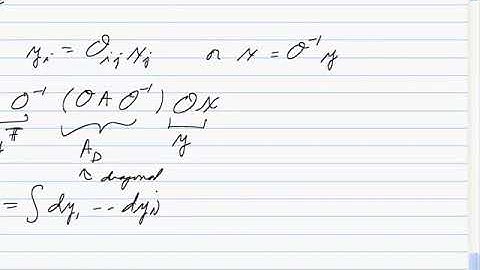 y_i = O_{ij} x_j or x = O^{-1} y
O^{-1} (O A O^{-1}) O x
T
A_D y
↖ diagonal
= ∫ dy_1 ... dy_N